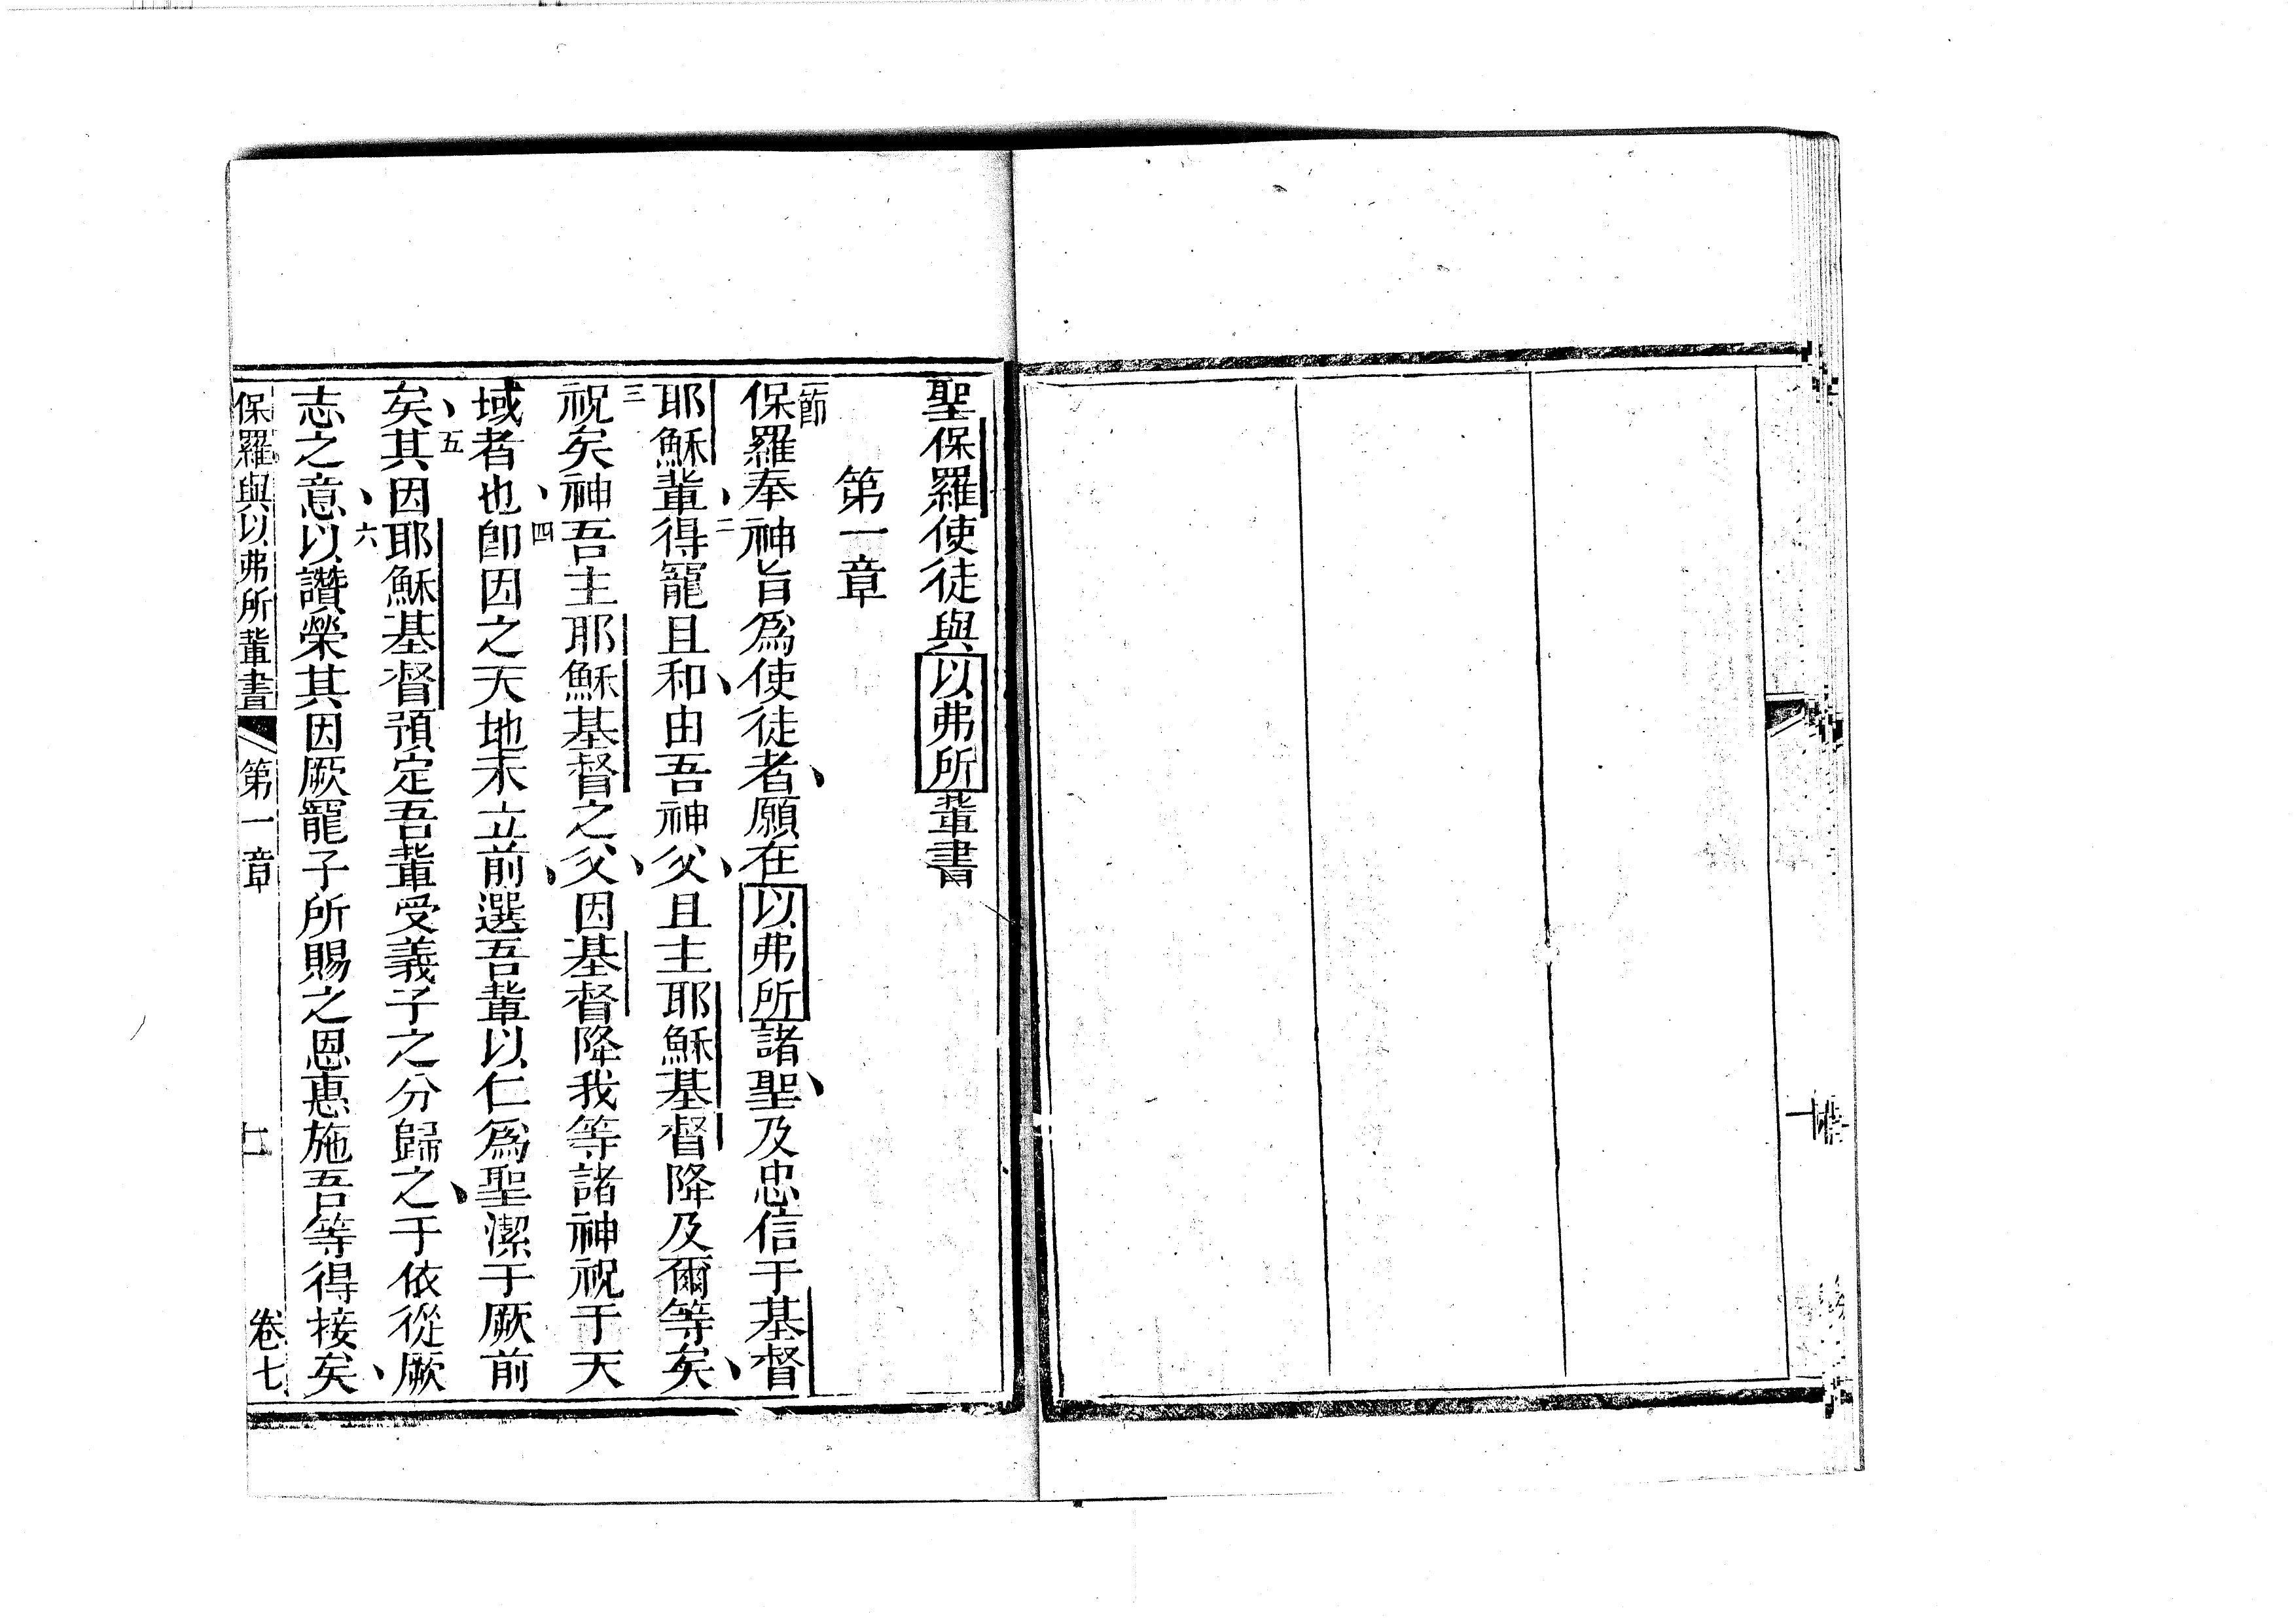 聖保羅使徒與以弗所輩書
第一章
一節保羅奉神旨爲使徒者、願在以弗所諸聖、及忠信于基督
耶穌輩、二得寵且和、由吾神父、且主耶穌基督降及爾等矣、
三祝矣神吾主耶穌基督之父、因基督降我等諸神祝于天
域者也、四卽因之天地未立前、選吾輩以仁爲聖潔于厥前
矣、五其因耶穌基督預定吾輩受義子之分歸之、于依從厥
志之意、六以讚榮其因厥寵子所賜之恩惠施吾等得接矣、
保羅與以弗所輩書 第一章 卷七